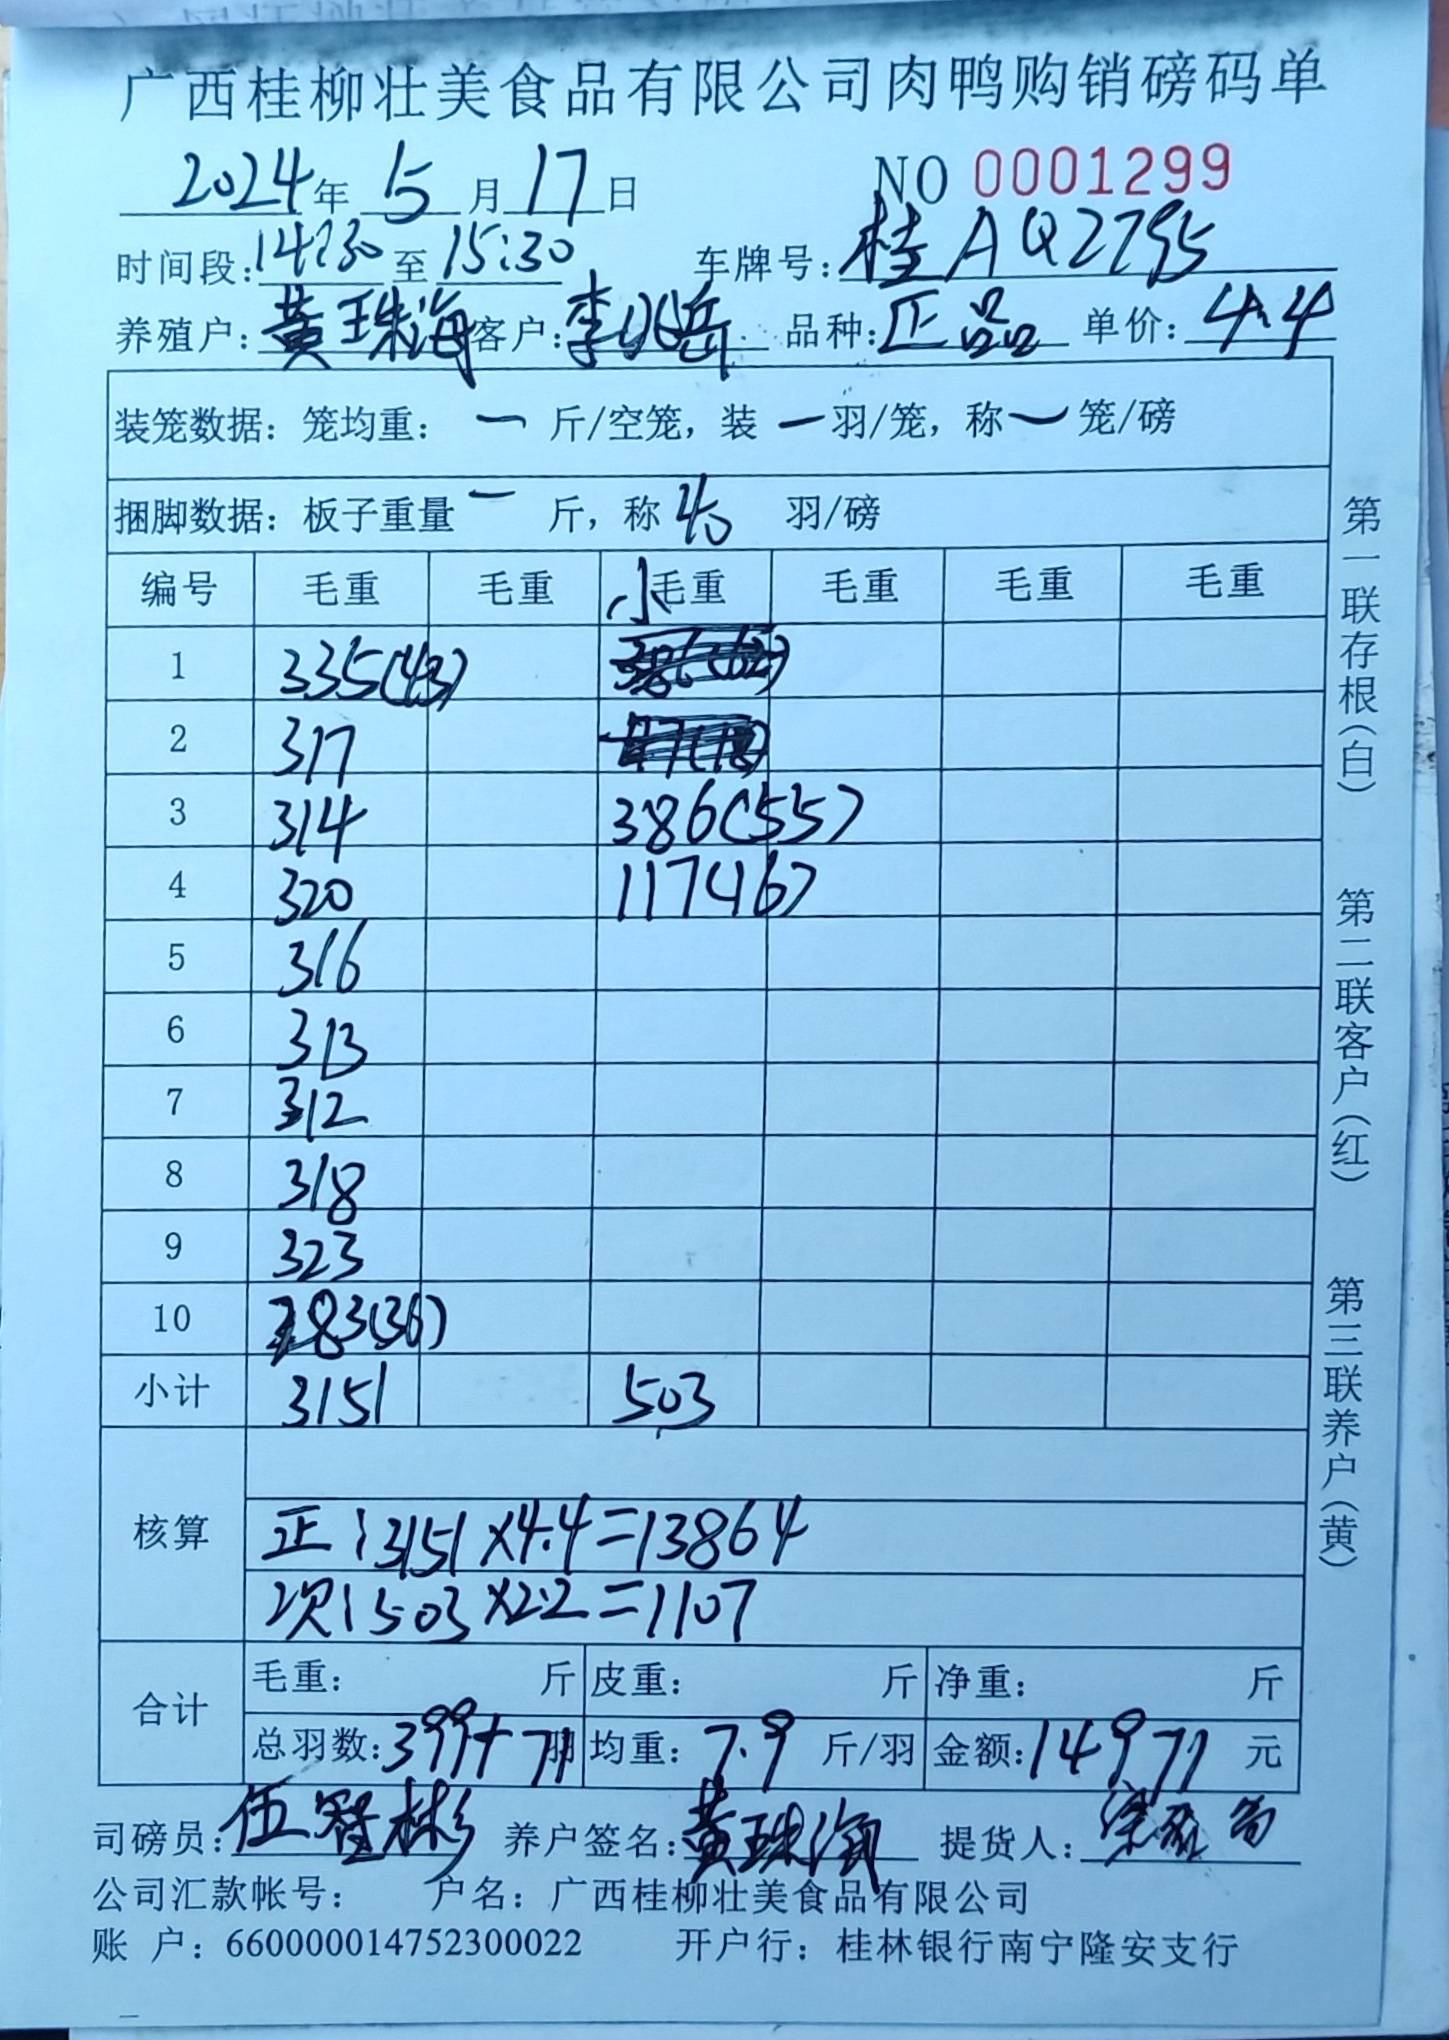 广西桂柳壮美食品有限公司肉鸭购销磅码单
2024年 5月17日 NO 0001299
时间段:14:30至15:30 车牌号:桂AQ2795
养殖户:黄珠海 客户:李兆岳 品种:正品 单价:4.4
装笼数据:笼均重: 一 斤/空笼,装 一 羽/笼,称 一 笼/磅
捆脚数据:板子重量 一 斤,称 40 羽/磅
编号 毛重 毛重 小毛重 毛重 毛重 毛重
1 335(43)
2 317
3 314 386(55)
4 320 117(16)
5 316
6 313
7 312
8 318
9 323
10 283(36)
小计 3151 503
核算
正:3151×4.4=13864
次:503×2.2=1107
合计
毛重: 斤 皮重: 斤 净重: 斤
总羽数:399+71羽 均重:7.9 斤/羽 金额:14971 元
司磅员:伍智彬 养户签名:黄珠海 提货人:
公司汇款帐号: 户名:广西桂柳壮美食品有限公司
账 户:660000014752300022 开户行:桂林银行南宁隆安支行
第一联存根(白)
第二联客户(红)
第三联养户(黄)